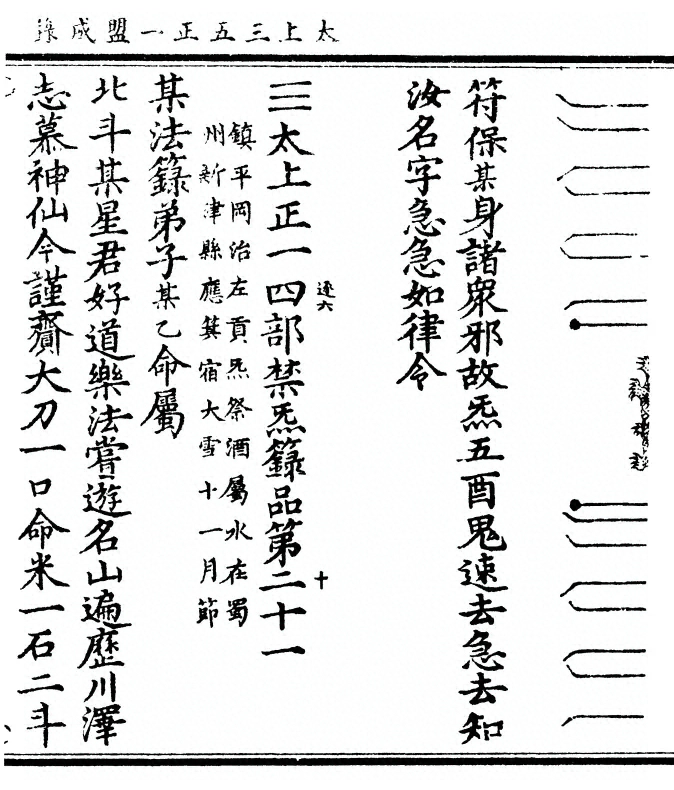 太上三五正一盟威籙
符保某身諸眾邪故炁五酉鬼速去急去知
汝名字急急如律令
三太上正一四部禁炁籙品第二十一
逐六
十
鎮平岡治左貢炁祭酒屬水在蜀
州新津縣應箕宿大雪十一月節
某法籙弟子某乙命屬
北斗某星君好道樂法嘗遊名山遍歷川澤
志慕神仙今謹齎大刀一口命米一石二斗